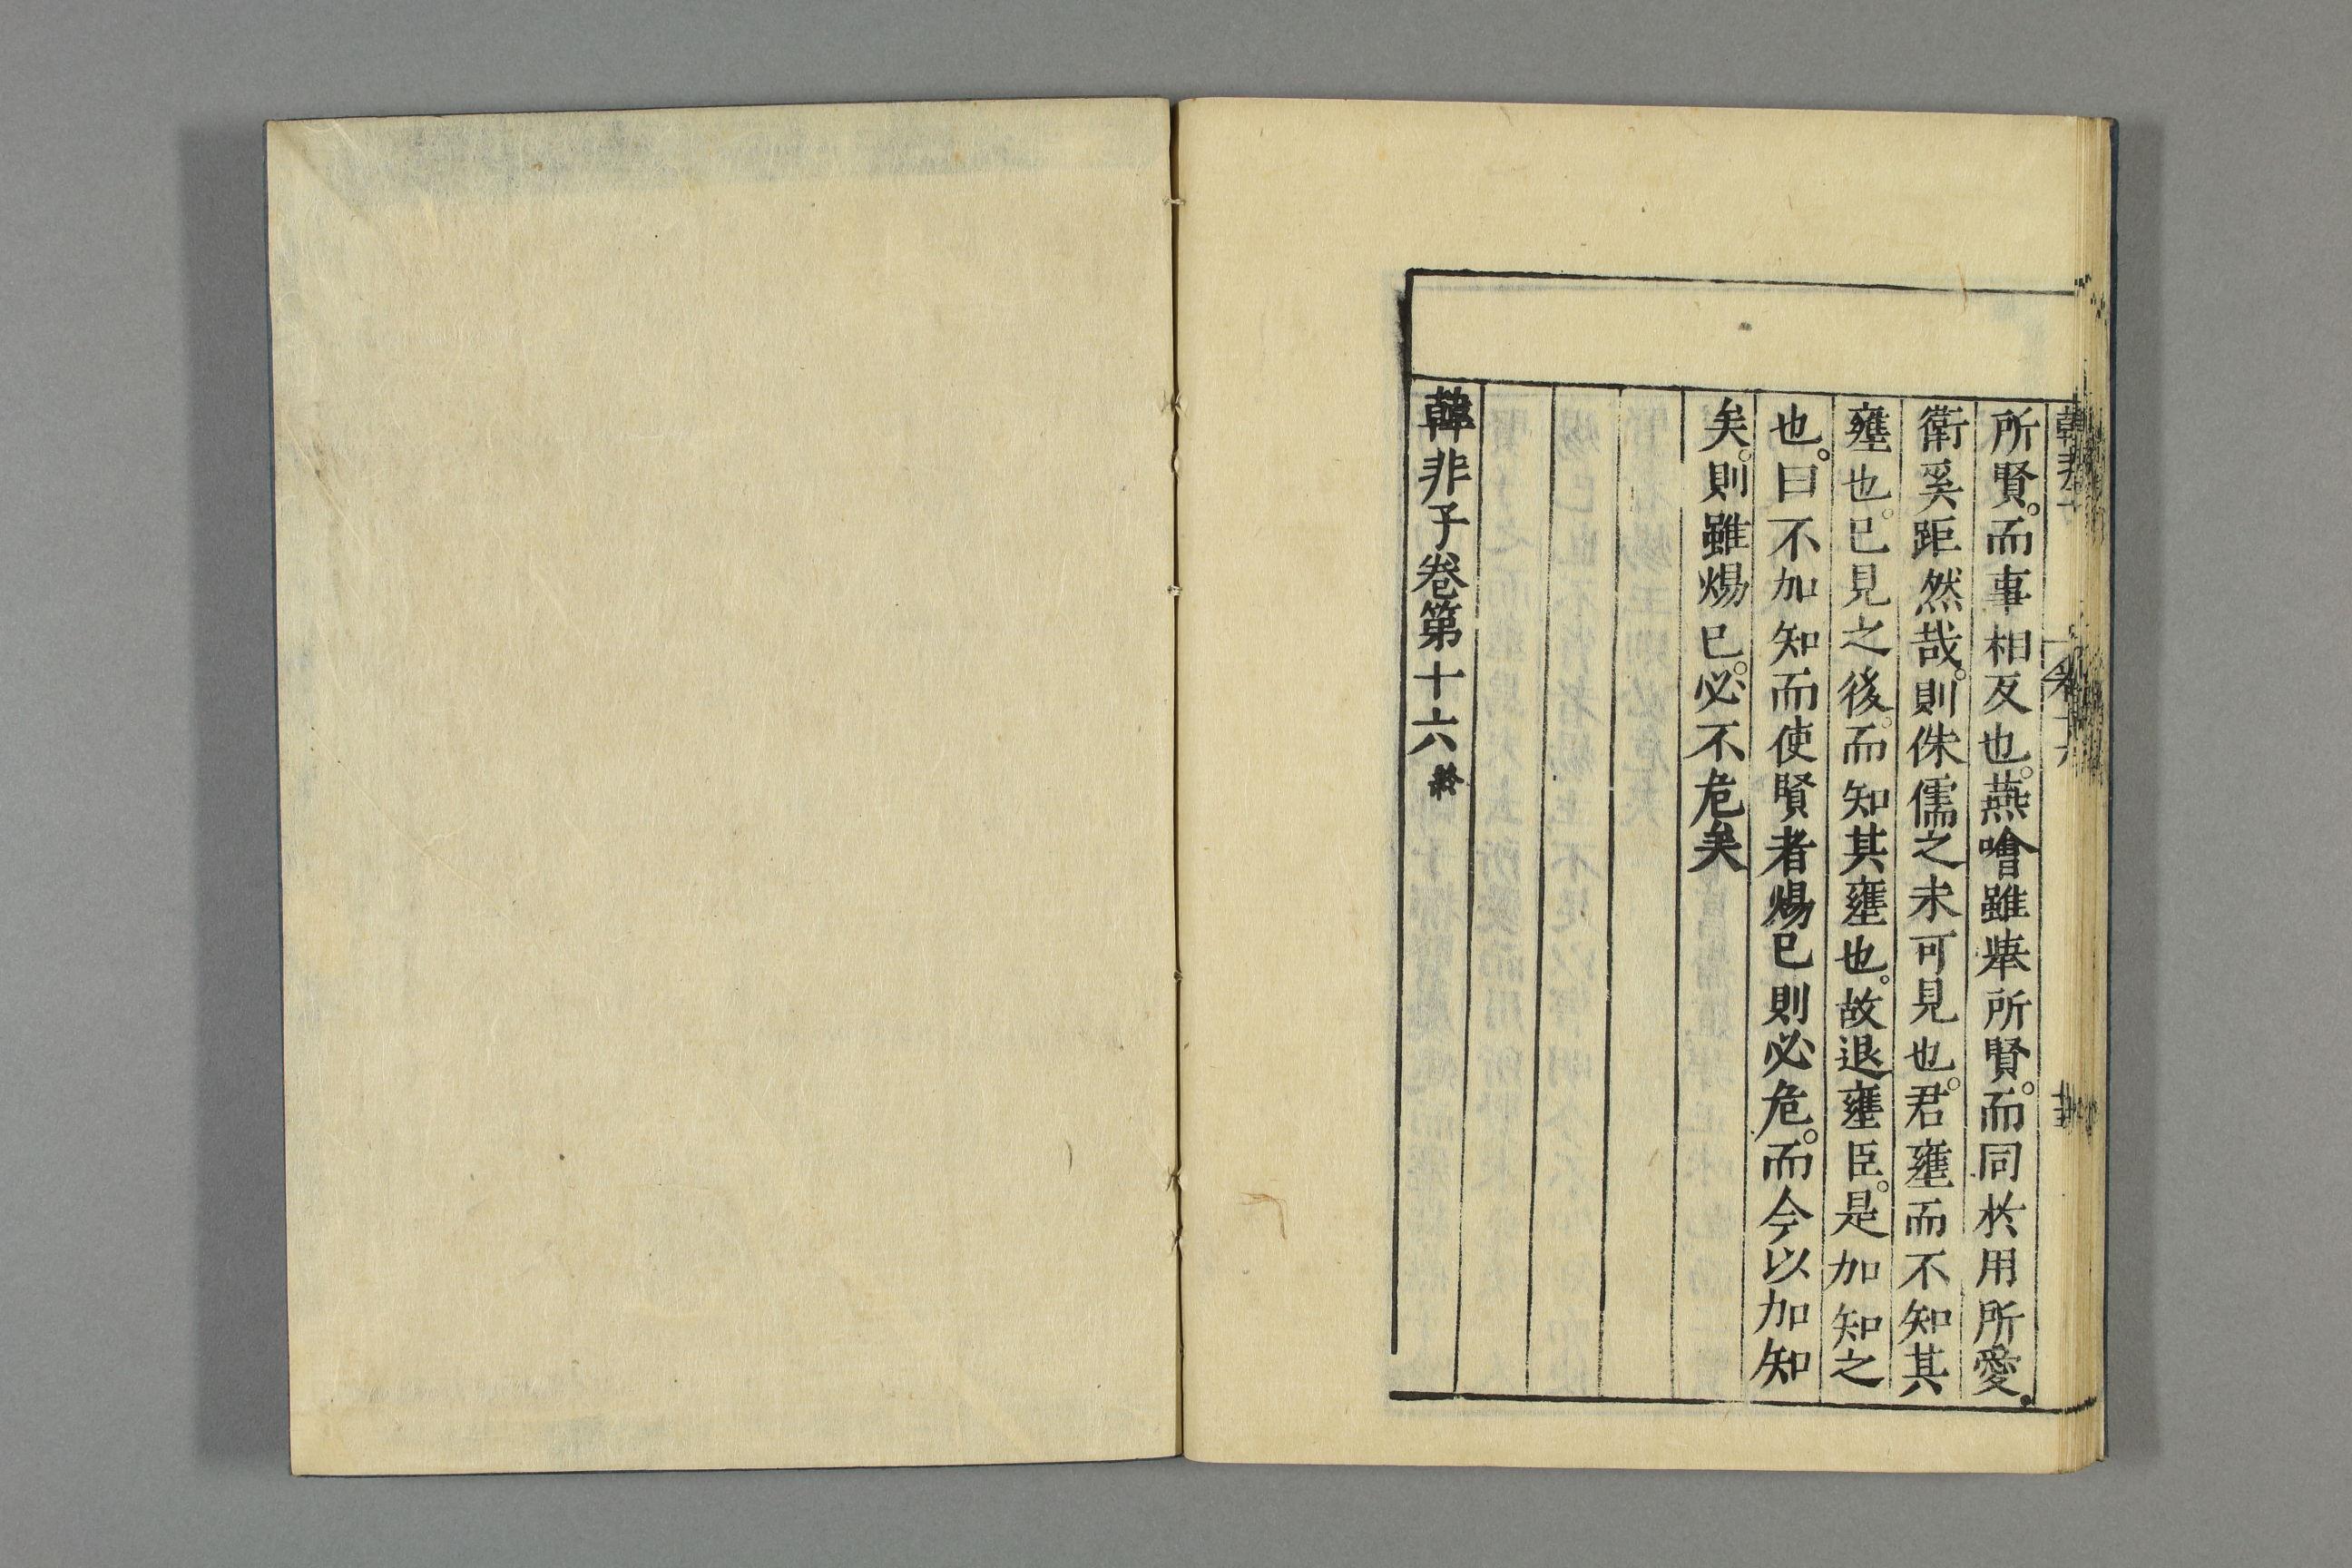 所賢。而事相反也。燕噲雖擧所賢。而同於用所愛。
衛奚距然哉。則侏儒之未可見也。君壅而不知其
壅也。已見之後。而知其壅也。故退壅臣。是加知之
也。曰不加知而使賢者煬已則必危。而今以加知
矣。則雖煬已。必不危矣
韓非子卷第十六